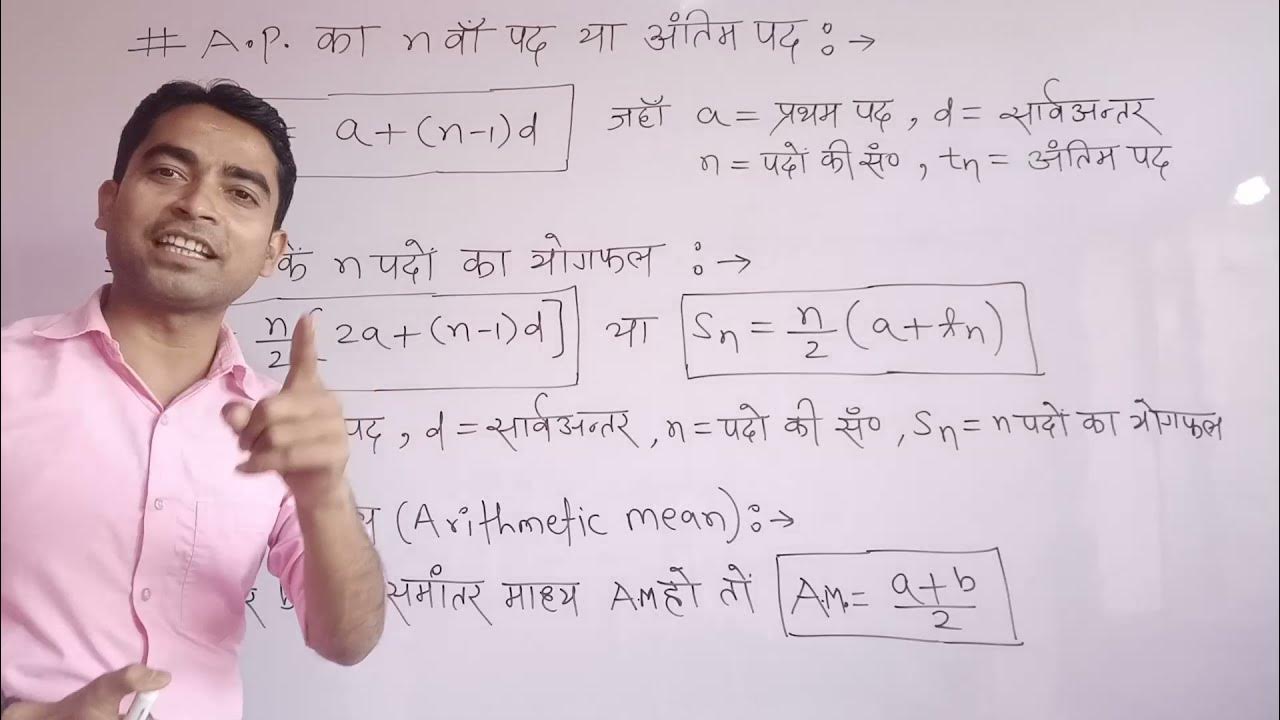 # A.P. का n वाँ पद या अंतिम पद :→
= a+(n-1)d जहाँ a = प्रथम पद , d = सार्वअन्तर
n = पदों की सं० , tn = अंतिम पद
के n पदों का योगफल :→
n/2 [2a+(n-1)d] या Sn = n/2 (a+tn)
पद , d = सार्वअन्तर , n = पदो की सं० , Sn = n पदों का योगफल
(Arithmetic mean):→
समांतर माध्य A.M हो तो A.M. = a+b/2